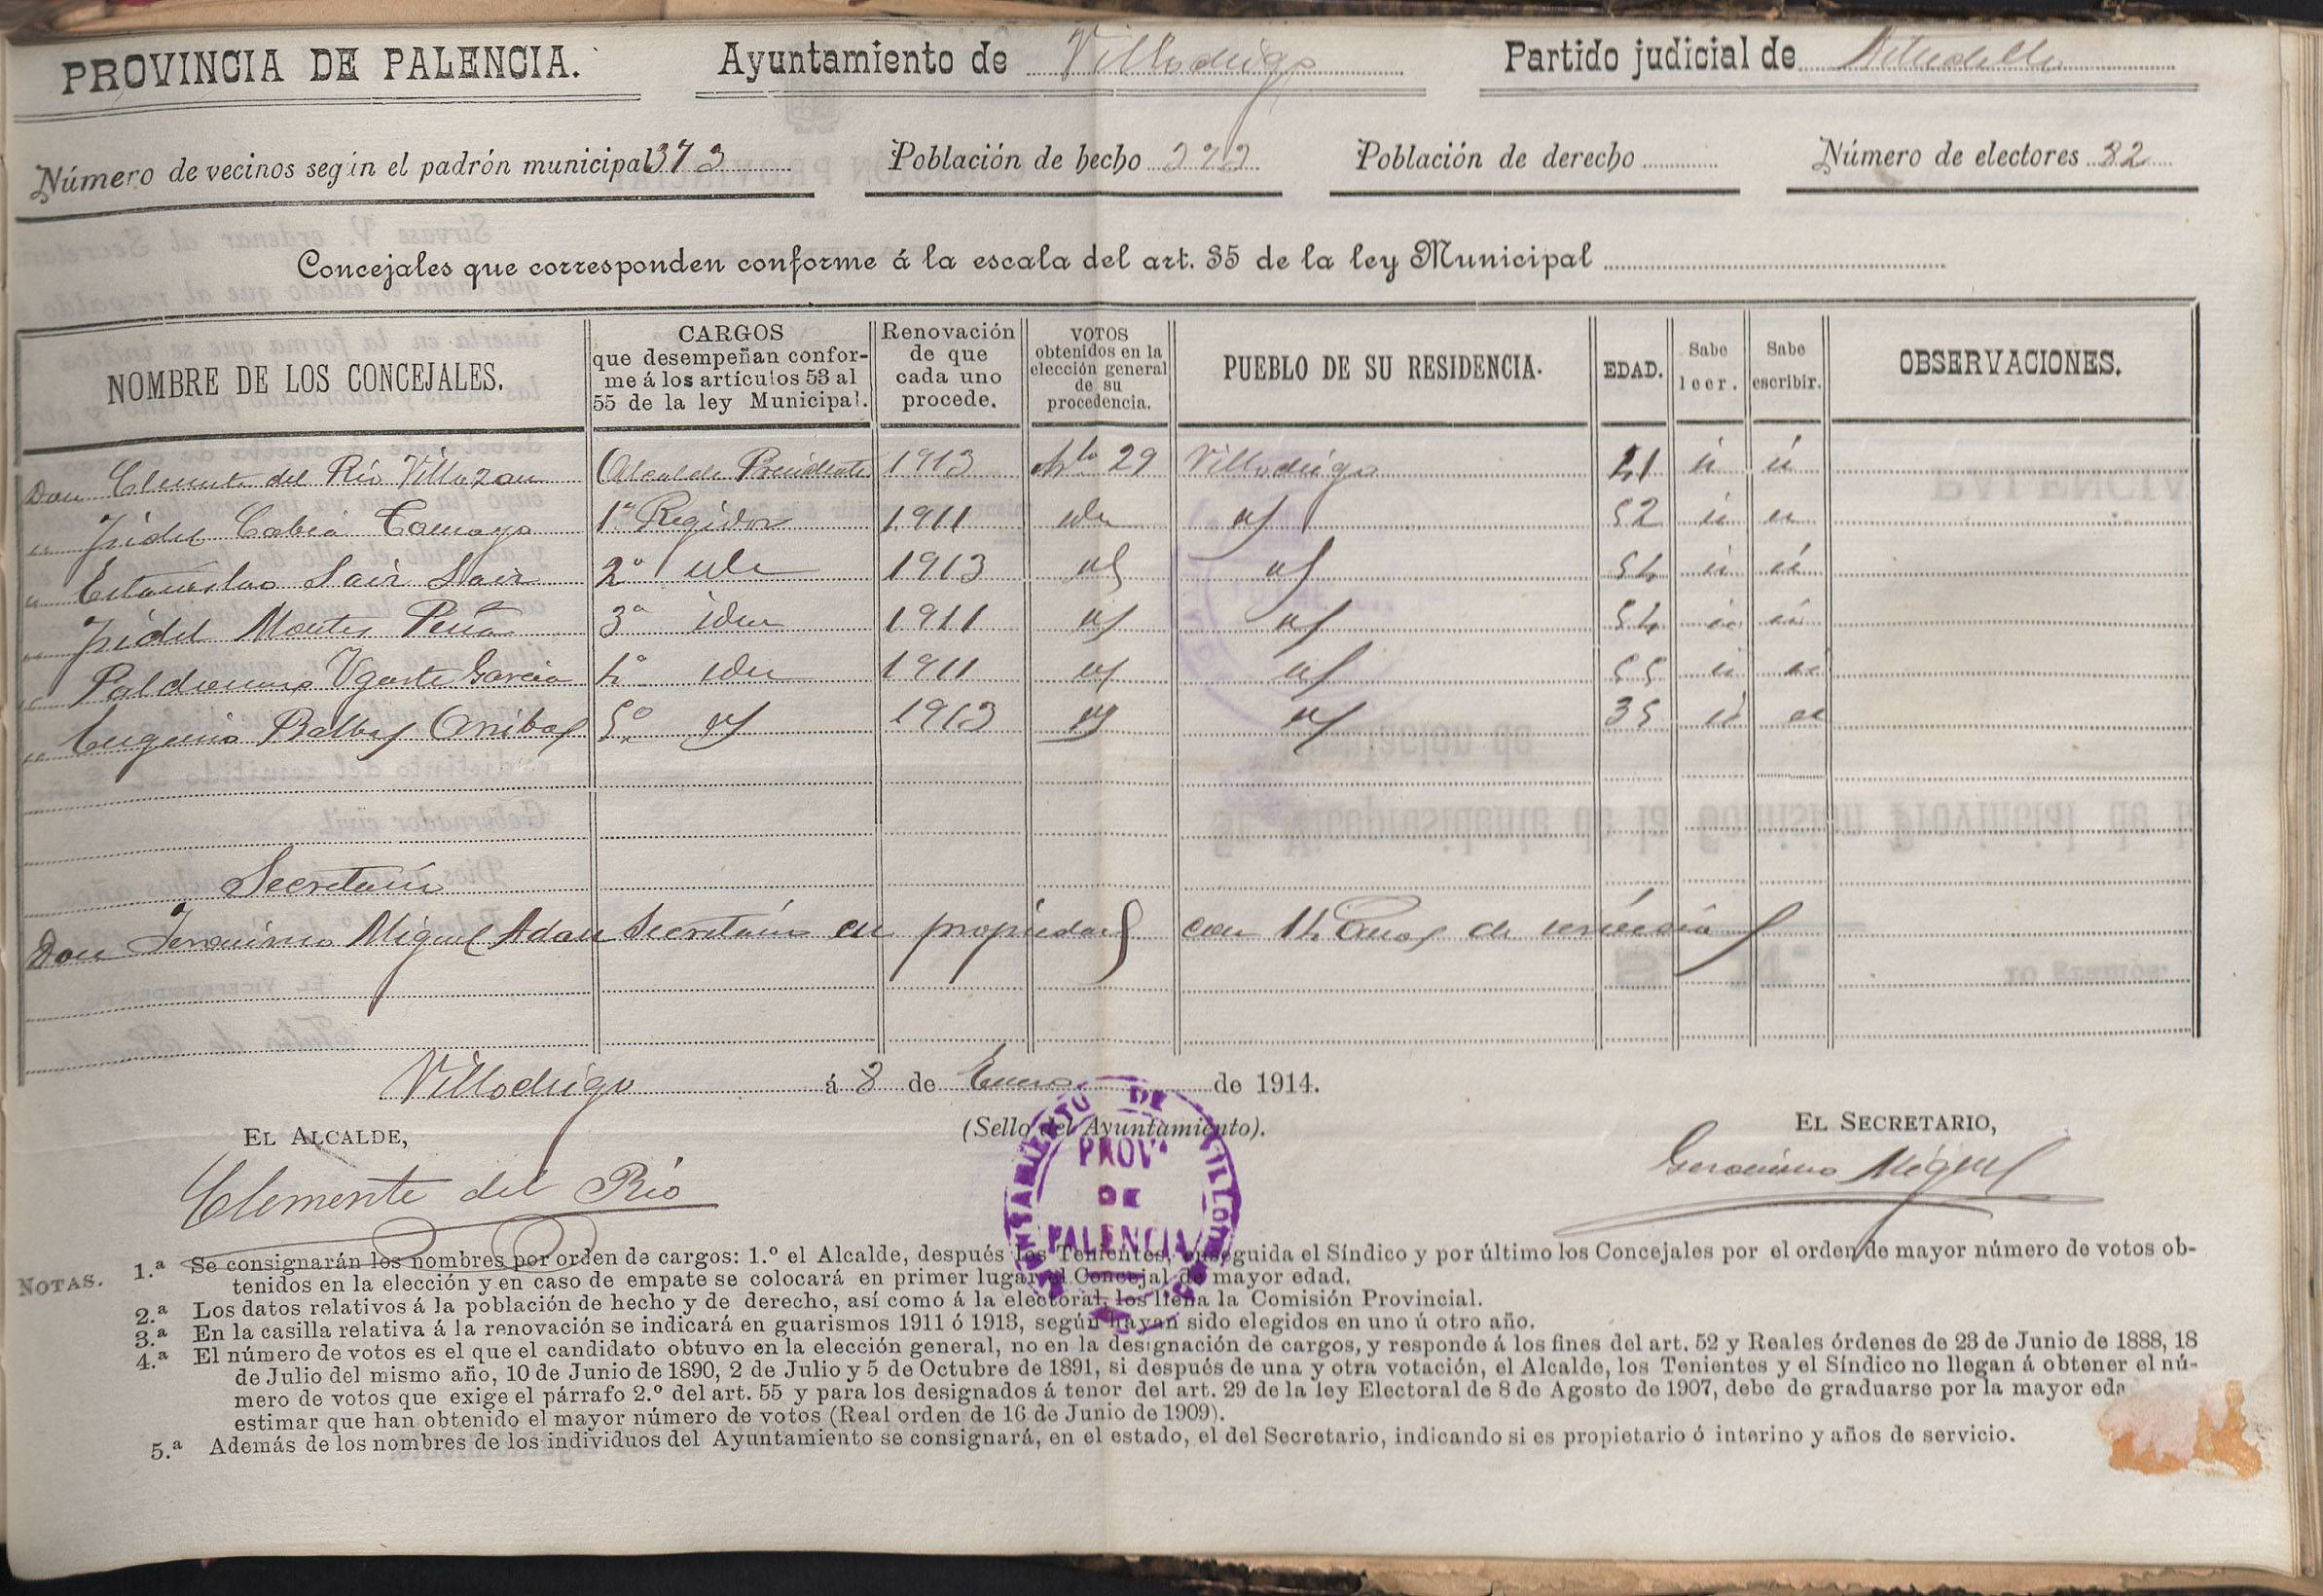 PROVINCIA DE PALENCIA. Ayuntamiento de Villodrigo Partido judicial de Astudillo
Número de vecinos según el padrón municipal 373 Población de hecho Población de derecho Número de electores 82
Concejales que corresponden conforme á la escala del art. 35 de la ley Municipal
NOMBRE DE LOS CONCEJALES. CARGOS que desempeñan conforme á los artículos 53 al 55 de la ley Municipal. Renovación de que cada uno procede. VOTOS obtenidos en la elección general de su procedencia. PUEBLO DE SU RESIDENCIA. EDAD. Sabe leer. Sabe escribir. OBSERVACIONES.
Don Clemente del Río Villazan Alcalde Presidente 1913 Arto 29 Villodrigo 41 si si
" Fidel Cabia Tamayo 1º Regidor 1911 idem id 52 si si
" Estanislao Saiz Saiz 2º idem 1913 id id 54 si si
" Fidel Montes Peña 3º idem 1911 id id 54 si si
" Ugarte Garcia 4º idem 1911 id id 55 si si
" Eugenio Balbas 5º id 1913 id id 35 si si
Secretario
Don Jeronimo Miguel Adan Secretario en propiedad con 14 años de servicio
Villodrigo á 8 de Enero de 1914.
EL ALCALDE, (Sello del Ayuntamiento). EL SECRETARIO,
AYUNTAMIENTO DE VILLODRIGO
PROVª
DE
PALENCIA
Clemente del Río Geronimo Miguel
NOTAS. 1.ª Se consignarán los nombres por orden de cargos: 1.º el Alcalde, después los Tenientes, enseguida el Síndico y por último los Concejales por el orden de mayor número de votos ob-
tenidos en la elección y en caso de empate se colocará en primer lugar el Concejal de mayor edad.
2.ª Los datos relativos á la población de hecho y de derecho, así como á la electoral, los llena la Comisión Provincial.
3.ª En la casilla relativa á la renovación se indicará en guarismos 1911 ó 1913, según hayan sido elegidos en uno ú otro año.
4.ª El número de votos es el que el candidato obtuvo en la elección general, no en la designación de cargos, y responde á los fines del art. 52 y Reales órdenes de 23 de Junio de 1888, 18
de Julio del mismo año, 10 de Junio de 1890, 2 de Julio y 5 de Octubre de 1891, si después de una y otra votación, el Alcalde, los Tenientes y el Síndico no llegan á obtener el nú-
mero de votos que exige el párrafo 2.º del art. 55 y para los designados á tenor del art. 29 de la ley Electoral de 8 de Agosto de 1907, debe de graduarse por la mayor eda
estimar que han obtenido el mayor número de votos (Real orden de 16 de Junio de 1909).
5.ª Además de los nombres de los individuos del Ayuntamiento se consignará, en el estado, el del Secretario, indicando si es propietario ó interino y años de servicio.